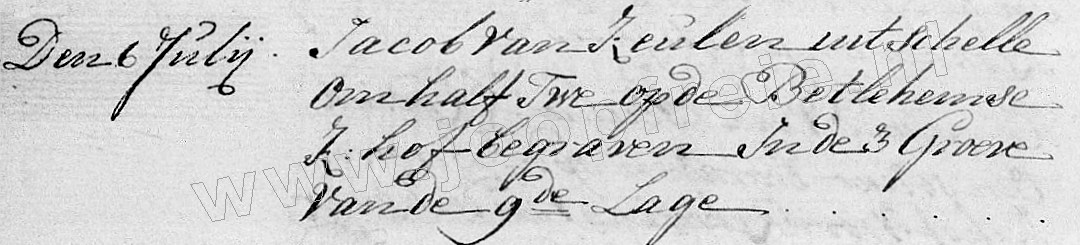 Den 6 Julij. Jacob van Keulen uit schelle
om half Twe op de Betlehemse
K: hof begraven In de 3 Groeve
van de 9de Lage . . . . . .
www.joopfreje.nl